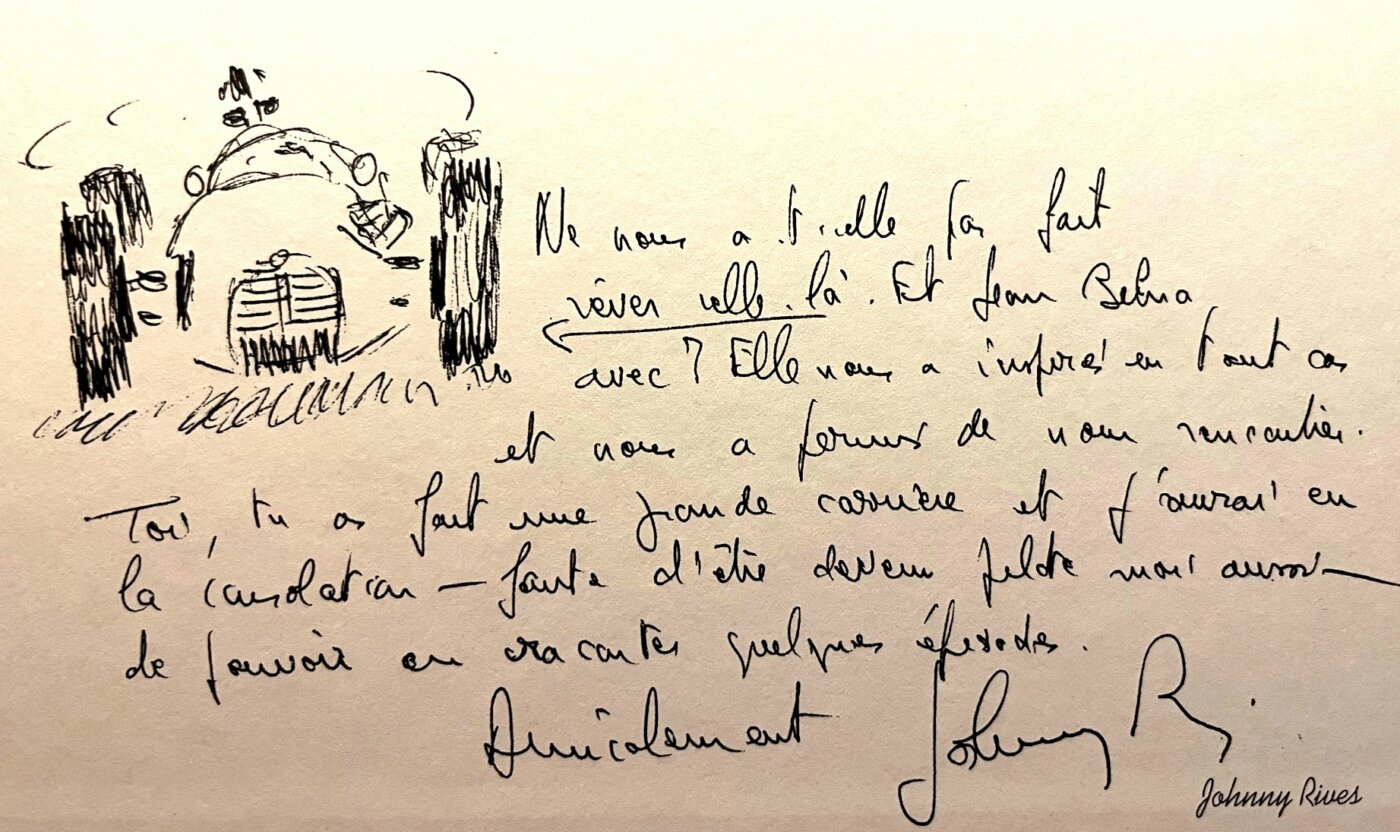 Ne nous a t-elle pas fait
rêver celle-là. Et Jean Behra
avec ? Elle nous a inspirés en tout cas
et nous a permis de nous rencontrer.
Toi, tu as fait une grande carrière et j'aurai eu
la consolation — faute d'être devenu pilote moi aussi —
de pouvoir en raconter quelques épisodes.
Amicalement Johnny R.
Johnny Rives